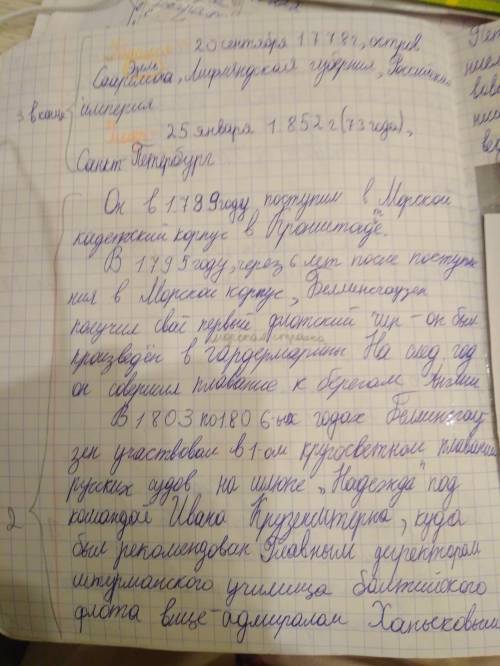 Родился 20 сентября 1778г, остров
Эзель
Сааремаа, Лифляндская губерния, Российская
3. в конце
империя
25 января 1.852 г (73 года),
Санкт Петербург
Он в 1.789 году поступил в Морской
кадетский корпус в Кронштадте.
В 1.795 году, через 6 лет после поступле
ния в Морской корпус, Беллинсгаузен
получил свой первый флотский чин - он был
произведён в гардемарины На след. год
он совершил плавание к берегам Англии
В 1803 по 1.806-ых годах Беллинсгау
зен участвовал в 1-ом кругосветном плавании
русских судов на шлюпе „Надежда" под
командой Ивана Крузенштерна, куда
2
был рекомендован Главным директором
штурманского училища балтийского
флота вице-адмиралом Ханыковым